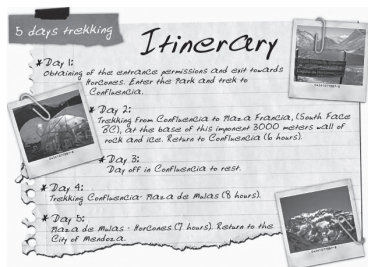 5 days trekking
Itinerary
* Day 1:
Obtaining of the entrance permissions and exit towards
Horcones. Enter the Park and trek to
Confluencia.
* Day 2:
Trekking From Confluencia to Plaza Francia, (South Face
BC), at the base of this imponent 3000 meters wall of
rock and ice. Return to Confluencia (6 hours).
* Day 3:
Day off in Confluencia to rest.
* Day 4:
Trekking Confluencia- Plaza de Mulas (8 hours).
* Day 5:
Plaza de Mulas - Horcones (7 hours). Return to the
City of Mendoza.